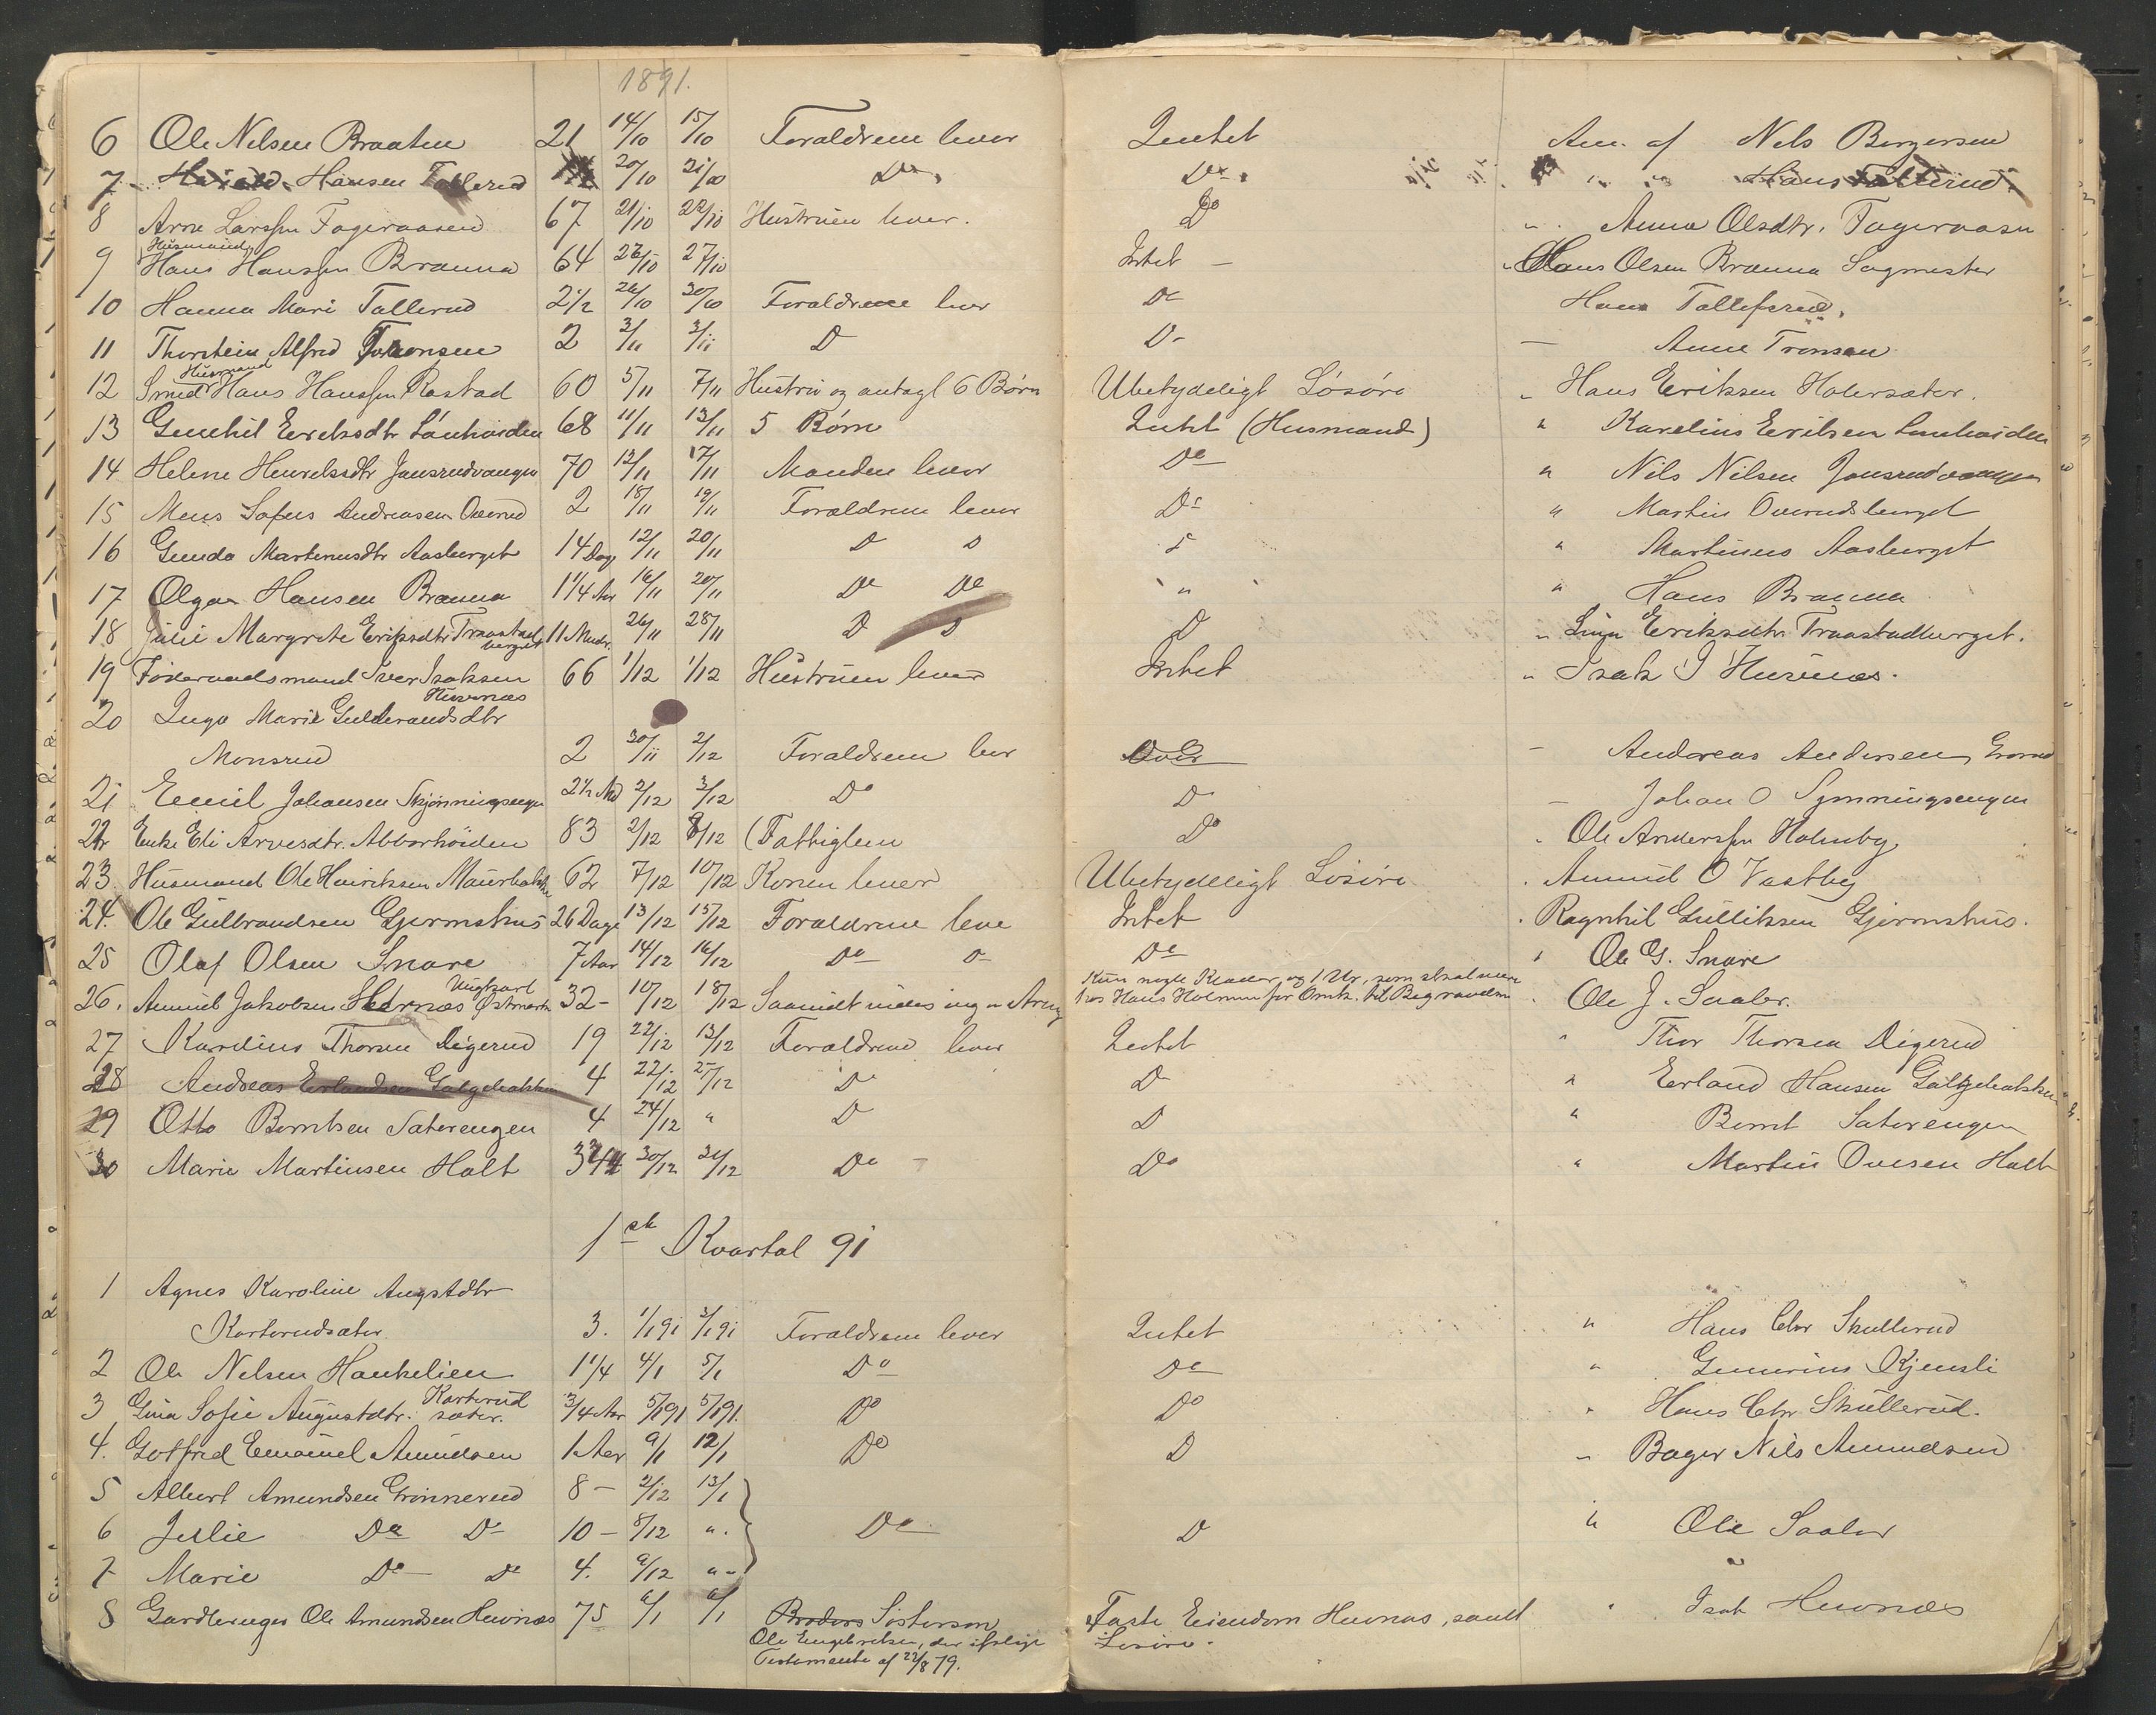 1891.
6 Ole Nilsen Braaten 21 14/10 15/10 Foraldrene lever Intet Anm. af Nils Bergersen
7 Hansen Tollerud 20/10 21/10 Do Do " " Hans Tollerud
8 Arne Larssen Fageraasen 67 21/10 22/10 Hustruen lever. Do " Anne Olsdtr. Fageraasen
Husmand
9 Hans Hanssen Brænna 64 26/10 27/10 Intet - " Hans Olsen Brænna Sagmester
10 Hanna Mari Tollerud 2 1/2 26/10 30/10 Foraldrene lever Do Hans Tollefsrud.
11 Thorstein Alfred 2 2/11 3/11 D D - Anne Tronsen
Husmand
12 Smed Hans Hanssen Rastad 60 5/11 7/11 Hustru og antagl 6 Børn Ubetydeligt Løsøre " Hans Eriksen Holersæter.
13 Gunhil Eriksdtr Lauhoiden 68 11/11 13/11 5 Børn Intet (Husmand) " Karelius Eriksen Lauhoiden
14 Helene Henriksdtr Jonsrudvangen 70 13/11 17/11 Manden lever Do " Nils Nilsen Jonsrudvangen
15 Mens Sofus Andreasen Overud 2 18/11 19/11 Foraldrene lever Do " Martin Overudsberget
16 Gunda Martinusdtr Aasberget 14 Dage 12/11 20/11 D D " Martinus Aasberget
17 Olga Hansen Brænna 1 1/4 Aar 16/11 20/11 Do Do " " Hans Brænna
18 Juli Margrete Eriksdtr Traastad 11 Mndr. 26/11 28/11 D D D " Lina Eriksdtr Traastadberget.
berget
19 Føderaadsmand Iver Isaksen 66 1/12 1/12 Hustruen lever Intet " Isak I Huvenæs.
Huvenæs
20 Inga Marie Gulbrandsdtr
Monsrud 2 30/11 2/12 Foraldrene lever - Andreas Andersen
21 Emil Johansen Skjønningsengen 2 1/2 Md 2/12 3/12 Do D - Johan O Synningsengen
22 Enke Eli Arnesdtr. Abborhöiden 83 2/12 8/12 (Fattiglem Do " Ole Anderssen Holmby
23. Husmand Ole Henriksen 62 7/12 10/12 Konen lever Ubetydeligt Løsøre " Amund O Vastby
24. Ole Gulbrandsen Gjermshus 26 Dage 13/12 15/12 Foraldrene leve Intet " Ragnhil Gulliksen Gjermshus.
25 Olaf Olsen Snare 7 Aar 14/12 16/12 Do D Do " Ole G. Snare
Ungkarl Kun nogle Klæder og 1 Ur, som skal være
26. Amund Jakobsen Østmark 32 - 10/12 18/12 Saavidt vides ingen Arving hos Hans Holmen for Omk. til Begravelsen " Ole J. Saaler.
27 Karelius Thorsen Digerud 19 22/12 13/12 Foraldrene lever Intet " Thor Thorsen Digerud
28 Andreas Erlandsen Galgebakken 4 22/12 27/12 D D " Erland Hansen Galgebakken
29 Otto Berntsen Sæterengen 4 24/12 " D D " Bernt Sæterengen
30 Marie Martinsen Holt 30/12 31/12 Do - Do " Martin Ovesen Holt
1ste Kvartal 91
1 Agnes Karoline Augstdtr
Korterudsæter 3. 1/1 91 3/1 91 Foraldrene lever Intet " Hans Chr Skullerud
2 Ole Nilsen Haukelien 1 1/4 4/1 5/1 Do Do " Gunerius Kjensli
3 Gina Sofie Augustdtr. Korterud 3/4 Aar 5/1 91 5/1 91. Do Do " Hans Chr Skullerud.
sæter.
4. Gotfred Emanuel Amundsen 1 Aar 9/1 12/1 Do D " Bager Nils Amundsen
5 Albert Amundsen Grønnerud 8 - 2/12 13/1
6 Julie Do D 10 - 8/12 " Do D " Ole Saaler
7 Marie Do - Do 4. 9/12 "
8 Gardbruger Ole Amundsen Huvnæs 75 6/1 6/1 Broders Søstersøn Faste Eiendom Huvnæs, samt " Isak Huvnæs
Ole Engebretsen, der ifølge Løsøre.
Testamente af 22/8 79.